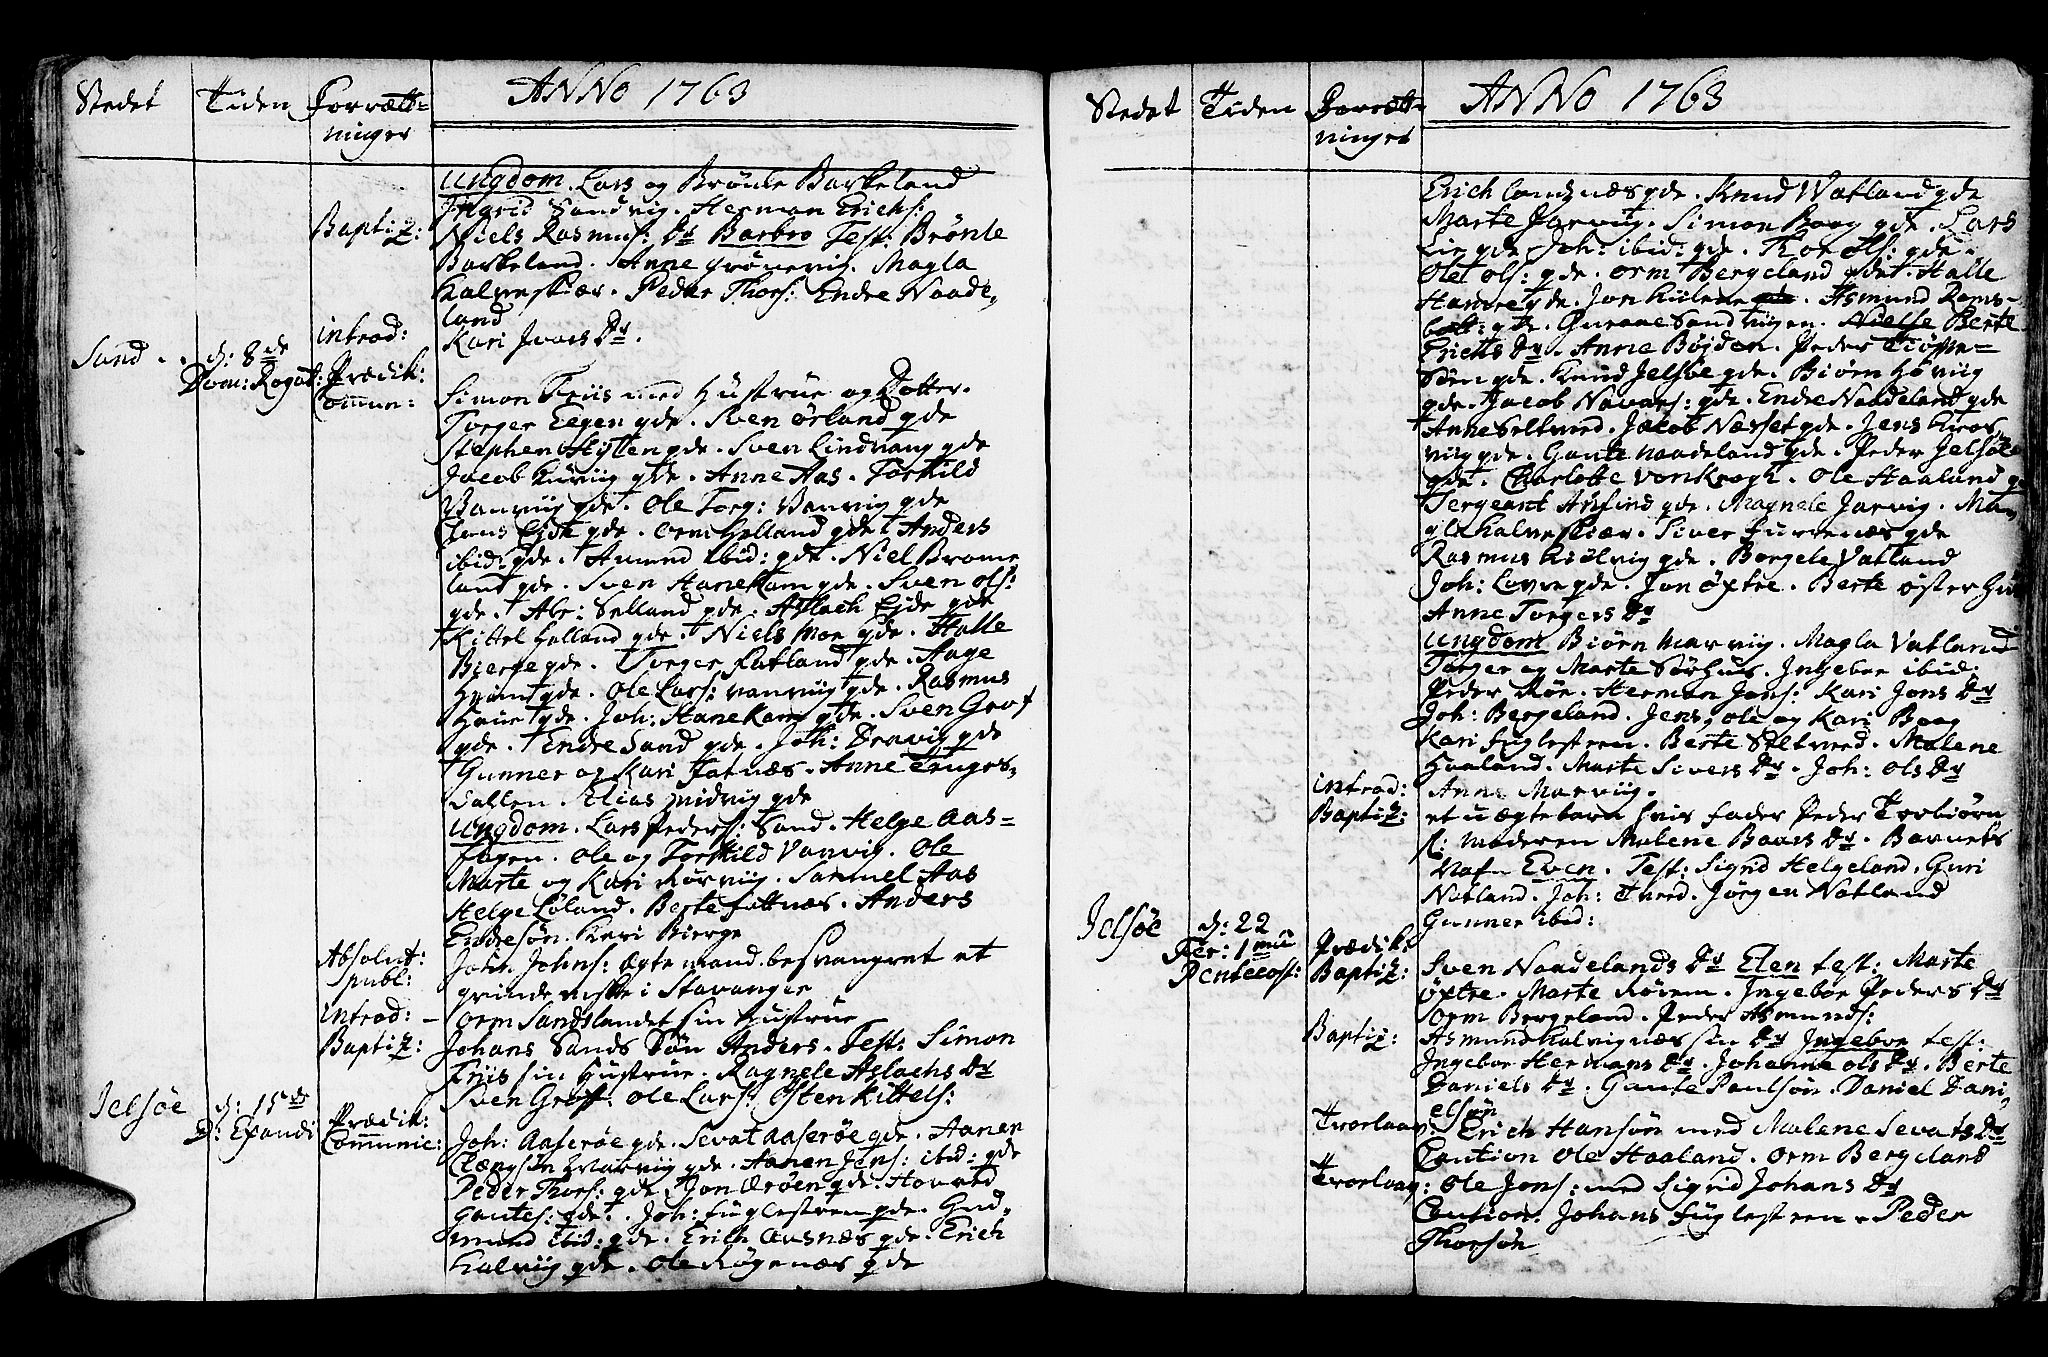 Stedet Tiden Forrættninger ANNO 1763
Ungdom. Lars og Brønle Barkeland
Ingrid Sandvig. Herman Erichs:
Baptiz: Niels Rasmus: Dr Barbro Test: Brønle
Barkeland. Anne Grønevig. Magla
Kalveskiær. Peder Thors: Endre Naade,
land
introd: Kari Ivars Dr.
Sand.. d: 8de
Dom: Rogat: Prædik:
Commun: Simon Friis med Hustrue og Dotter.
Torger Eegen gde. Sven Ørland gde
Stephen gde. Sven Lindvang gde
Jacob gde. Anne Aas. Torkild
Vanviig gde. Ole Torg: Vanvig gde
Jens Eide gde. Orm Helland gde. Anders
ibid: gde. Amund ibid: gde. Niel Brome
land gde. Sven Hanekam gde. Sven Ols:
gde. Abr: Selland gde. Aslach Eide gde
Kittel Helland gde. Niels Moe gde. Halle
Bierge gde. Torger Fatland gde. Aage
gde. Ole Lars: Vanviig gde. Rasmus
gde. Joh: Hanekam gde. Sven Grof
gde. Endre Sand gde. Joh: Dravig gde
Gunner og Kari Fatnæs. Anne
Dallen. Elias gde
Ungdom. Lars Peders: Sand. Helge Aas=
Ole og Torkild Vanvig. Ole
Marte og Kari Rørviig. Samuel Aas
Helge Løland. Berte Fattnæs. Anders
Endresøn. Kari Bierge
Absolut:
publ: John Johns: ægte mand. besvangret et
qvinde i Stavanger
introd: - Orm Sandslandet sin Hustrue
Baptiz: Johans Sands Søn Anders. Test: Simon
Friis sin Hustrue. Ragnele Aslachs Dr
Sven Grof: Ole Lars: Østen Kittels:
Jelsøe d: 15de
D: Exaudi Prædik:
Communic: Joh: Aaserøe gde. Sevat Aaserøe gde. Aanen
Marviig gde. Aanen Jens: ibid: gde
Peder Thors: gde. Jon Ærøen gde. Hovard
Gautes: gde. Joh: Fuglesteen gde. Gud,
mund ibid: gde. Erich gde. Erich
Kalviig gde. Ole Røgenæs gde
Stedet Tiden Forrættninger ANNO 1763
Erich gde. Knud Vatland gde
Marte Jarviig. Simon Baag gde. Lars
Lie gde. Joh: ibid: gde. Thor Ols: gde.
Ole Ols: gde. Orm Bergeland gde. Halle
Hamre gde. Jon Asmund Rams-
bott: gde. Gurane Sandviigen. Berte
Erichs Dr. Anne Bøjden. Peder
Søn gde. Knud Jelsbe gde. Biørn Høviig
gde. Jacob Navars: gde. Endre Naadeland gde
Anne Seltveed. Jacob Næsset gde. Jens
viig gde. Gaute Naadeland gde. Peder Jelsøe
gde. Charlotte von Krogh. Ole Haaland gde
Sergeant Arfind gde. Magnele Jarvig. Ma,
gla Kalveskiær. Siver Furrenæs gde
Rasmus gde. Borgele Vatland
Joh: Lovre gde. Jon Øxtre. Berte Østerhuus
Anne Torgers Dr
Ungdom Biørn Marviig. Magla Vatland
Torger og Marte Sørhus. Ingebor ibid:
Peder Røe. Herman Jens: Kari Jons Dr
Joh: Bergeland. Jens, Ole og Kari Baag
Kari Fuglesteen. Berte Seltveed. Malene
Haaland. Marte Sivers Dr. Joh: Ols Dr
introd: Anne Marviig.
Baptiz: et uægte barn hvis fader Peder Torbiørn
s: moderen Malene Baars Dr. Barnets
Nafn Even. Test: Sigrid Helgeland. Guri
Natland. Joh: Tveed. Jørgen Natland
Gunner ibid:
Jelsøe d: 22
Fer: 1mæ
Pentecost: Prædik:
Baptiz: Sven Naadelands Dr Elen test: Marte
Øxtre. Marte Røvem. Ingebor Peders Dr
Orm Bergeland. Peder Asmunds:
Baptiz: Asmund Kalvignæs sin Dr Ingebor test:
Ingebor Hermans Dr. Johanne Ols Dr. Berte
Daniels Dr. Gaute Paulsøn. Daniel Dani,
elsøn
Trorlaav: Erich Hansøn med Malene Sevats Dr
Caution Ole Haaland. Orm Bergeland
Trorlaav: Ole Jons: med Sigrid Johans Dr
Caution. Johans Fuglesteen. Peder
Thorsøn